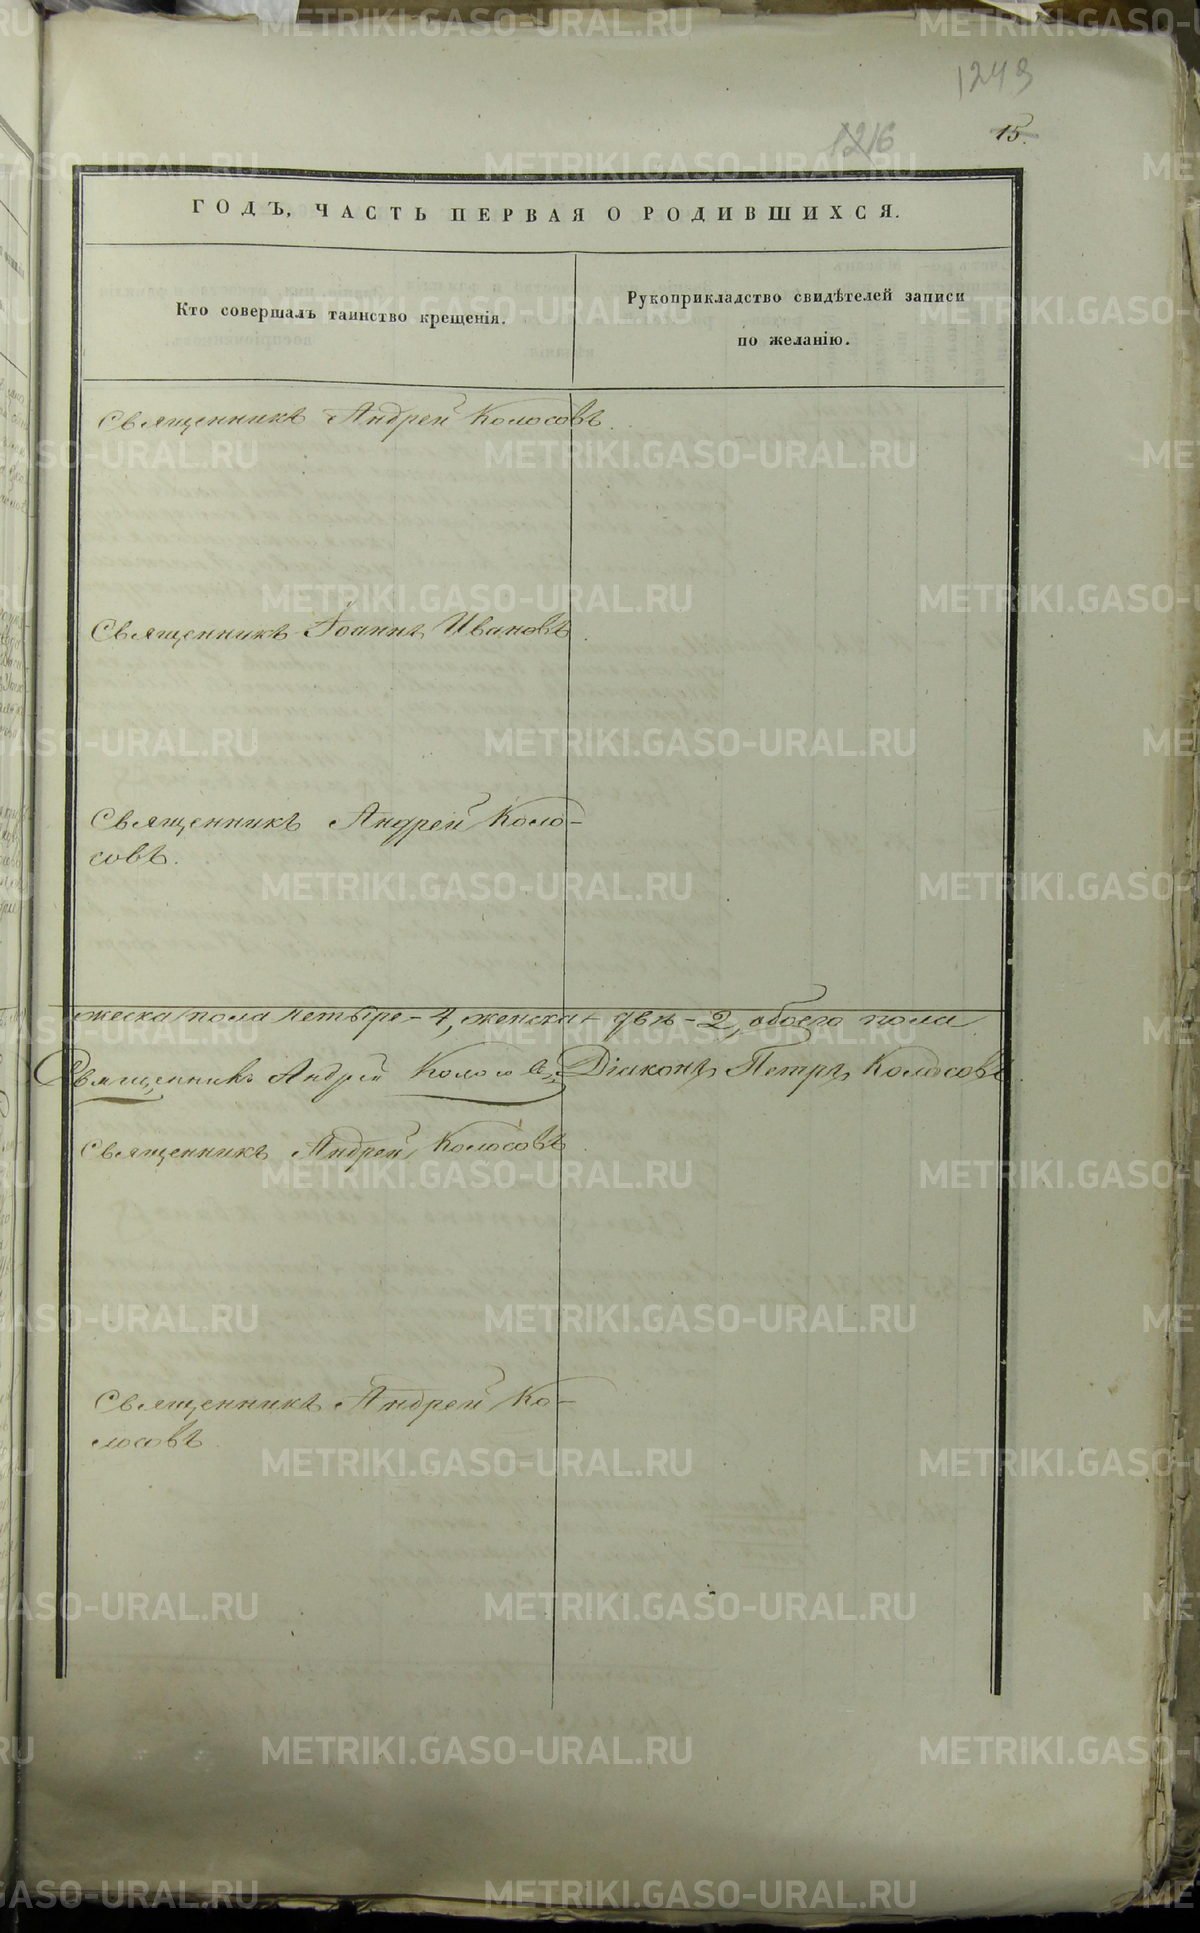 1249
1216
15.
ГОДЪ, ЧАСТЬ ПЕРВАЯ О РОДИВШИХСЯ.
Кто совершалъ таинство крещенія.
Рукоприкладство свидѣтелей записи
по желанію.
Священникъ Андрей Колосовъ.
Священникъ Іоаннъ Ивановъ.
Священникъ Андрей Коло-
совъ.
жеска пола четыре - 4, женска - двѣ - 2, обоего пола
Священникъ Андрей Колосовъ, Діаконъ Петръ Колосовъ
Священникъ Андрей Колосовъ
Священникъ Андрей Ко-
лосовъ
METRIKI.GASO-URAL.RU